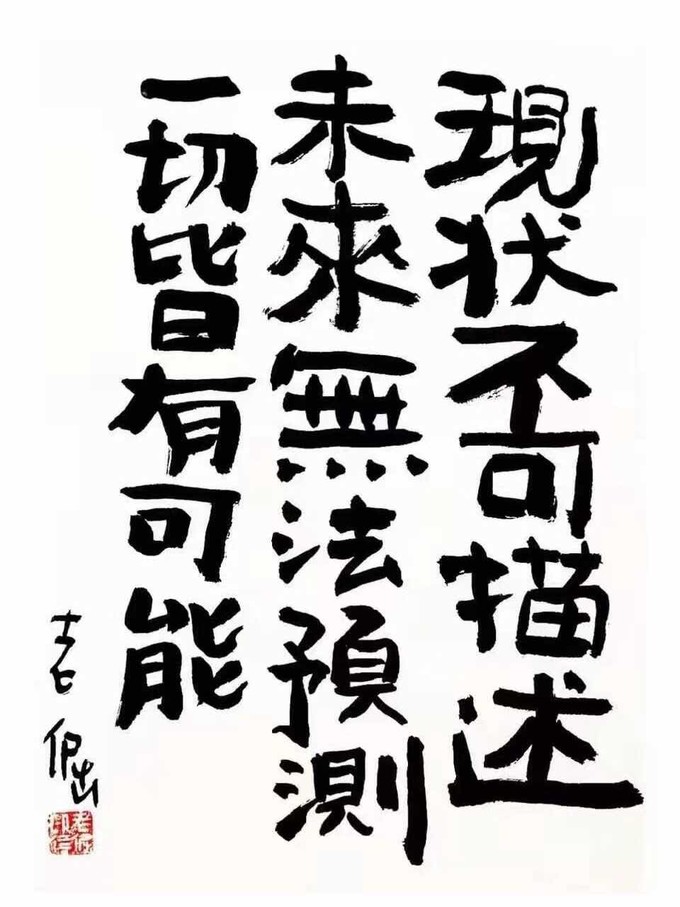 現状不可描述
未來無法預測
一切皆有可能